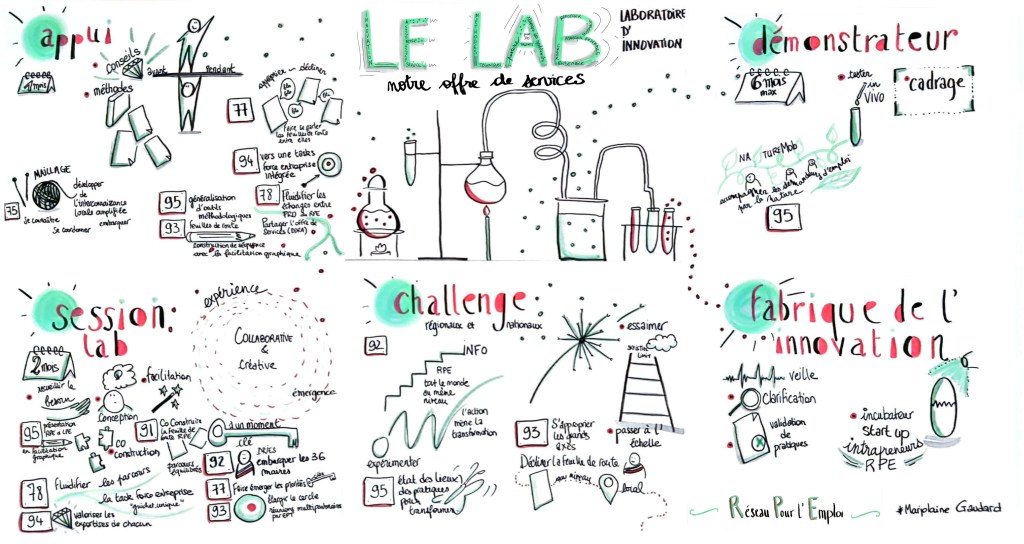 LE LAB
LABORATOIRE
D'
INNOVATION
notre offre de services
appui
conseils
avant
pendant
méthodes
77
approprier - décliner
Faire se parler
les feuilles de route
entre elles
94
vers une task
force entreprise
intégrée
78
Fluidifier les
échanges entre
PRO du RPE
Partager l'offre de
services
MAILLAGE
75
développer
de
l'interconnaissance
locale amplifiée
se connaître
se coordonner
embarquer
95
généralisation
d'outils
méthodologiques
93
feuille de route
construction de séquence
avec la facilitation graphique
démonstrateur
6 mois
max
tester
in
vivo
cadrage
NATUREMOB
accompagner les demandeurs d'emploi
par la nature
95
session:
lab
2 mois
recueillir le
besoin
facilitation
conception
co
construction
95
présentation
RPE et LPE
en facilitation
graphique
91
Co Construire
la feuille de
route RPE
parcours
78
Fluidifier les parcours
la task force entreprise
"guichet unique"
94
valoriser les
expertises de chacun
expérience
COLLABORATIVE
&
créative
émergence
d'un moment
clé
92
embarquer les 36
maires
77
Faire émerger les priorités
93
élargir le cercle
réunions multipartenaires
par EPT
challenge
régionaux et nationaux
92
INFO
RPE
tout le monde
au même
niveau
l'action
mène la
transformation
expérimenter
95
état des lieux
des pratiques
pour
transformer
essaimer
passer à l'
échelle
93
S'approprier
les grands
axes
Décliner la feuille de route
local
fabrique de l'
innovation
veille
Clarification
validation
de
pratiques
incubateur
start up
intrapreneurs
RPE
Réseau Pour l'Emploi
#Marjolaine Gaudard